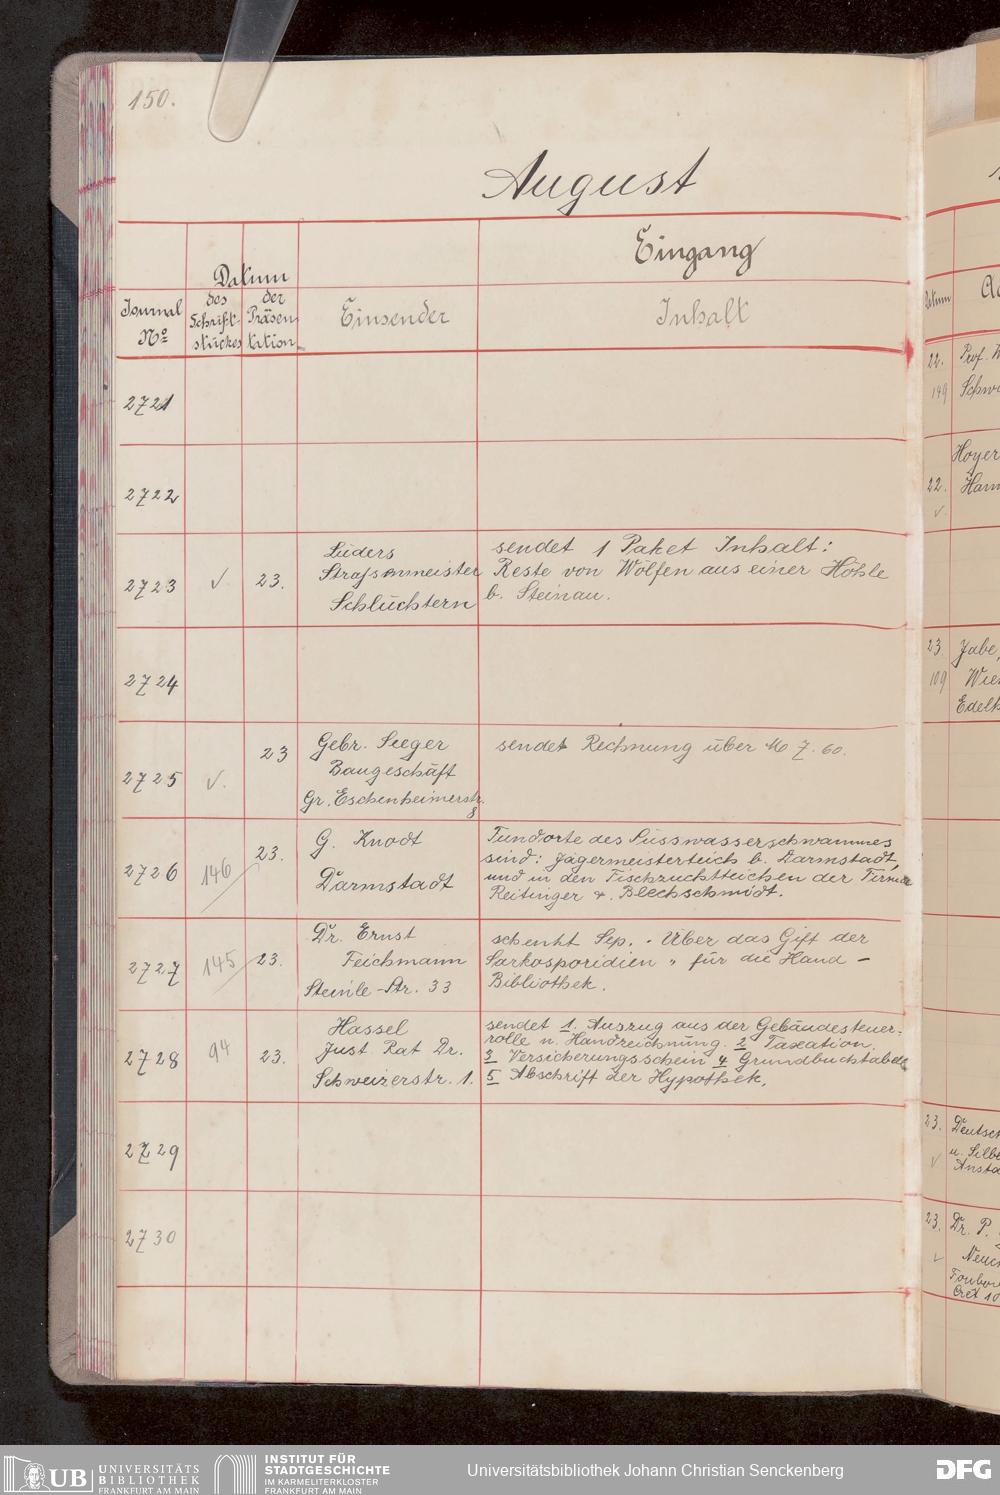 150.
August
Eingang
Datum
Journal
No
des
Schrift-
stückes
der
Präsen-
tation
Einsender
Inhalt
2721
2722
2723 ✓ 23.
Lüders
Strassenmeister
Schlüchtern
sendet 1 Paket Inhalt:
Reste von Wölfen aus einer Höhle
b. Steinau.
2724
2725 ✓. 23
Gebr. Seeger
Baugeschäft
Gr. Eschenheimerstr.
8
sendet Rechnung über M 7.60.
2726 146 23.
G. Knodt
Darmstadt
Fundorte des Süsswasserschwammes
sind: Jägermeisterteich b. Darmstadt,
und in den Fischzuchtteichen der Firma
Reitinger & Blechschmidt.
2727 145 23.
Dr. Ernst
Teichmann
Steinle-Str. 33
schenkt Sep. „Über das Gift der
Sarkosporidien" für die Hand-
Bibliothek.
2728 94 23.
Hassel
Just. Rat Dr.
Schweizerstr. 1.
sendet 1. Auszug aus der Gebäudesteuer-
rolle u. Handzeichnung. 2 Taxation.
3 Versicherungsschein 4 Grundbuchtabelle
5 Abschrift der Hypothek.
2729
2730
Datum
22. Prof.
149
Hoyer
22.
✓
23.
109 Wien
23. Deutsch
u. Silbe
✓ Ansta
23. Dr. P.
✓
UB UNIVERSITÄTS
BIBLIOTHEK
FRANKFURT AM MAIN
INSTITUT FÜR
STADTGESCHICHTE
IM KARMELITERKLOSTER
FRANKFURT AM MAIN
Universitätsbibliothek Johann Christian Senckenberg
DFG